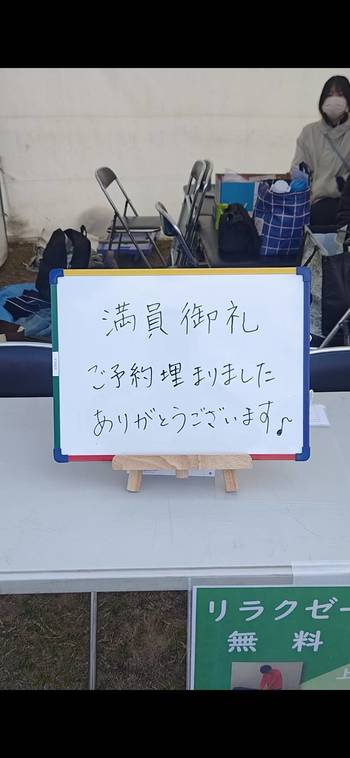 満員御礼
ご予約埋まりました
ありがとうございます♪
リラクゼー
無料
上